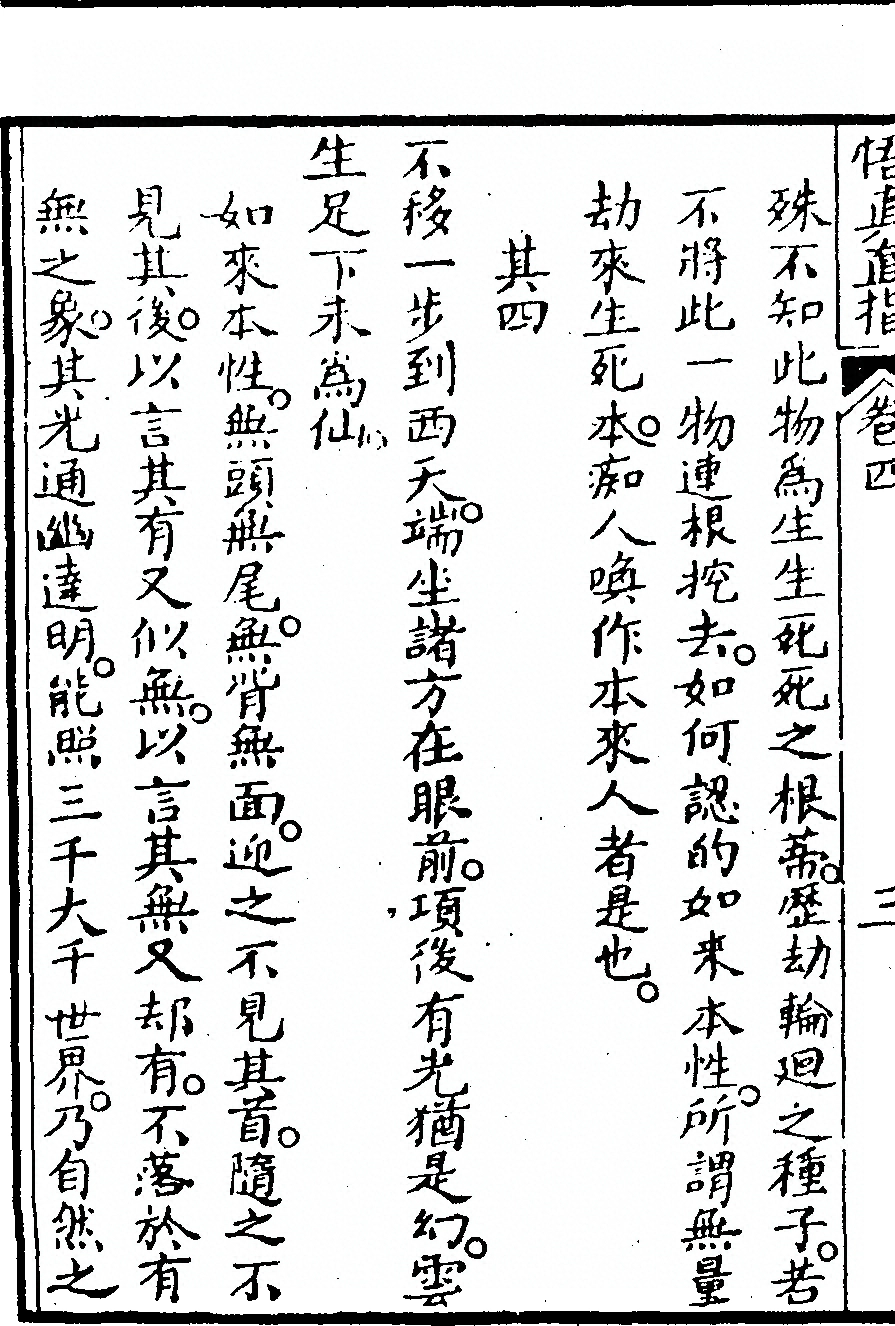 悟真直指 卷四 三
殊不知此物爲生生死死之根蒂。歷劫輪廻之種子。若
不將此一物連根挖去。如何認的如来本性。所謂無量
劫來生死本。痴人喚作本來人者是也。
其四
不移一步到西天。端坐諸方在眼前。項後有光猶是幻。雲
生足下未爲仙。
如來本性。無頭無尾。無背無面。迎之不見其首。隨之不
見其後。以言其有又似無。以言其無又却有。不落於有
無之象。其光通幽達明。能照三千大千世界。乃自然之